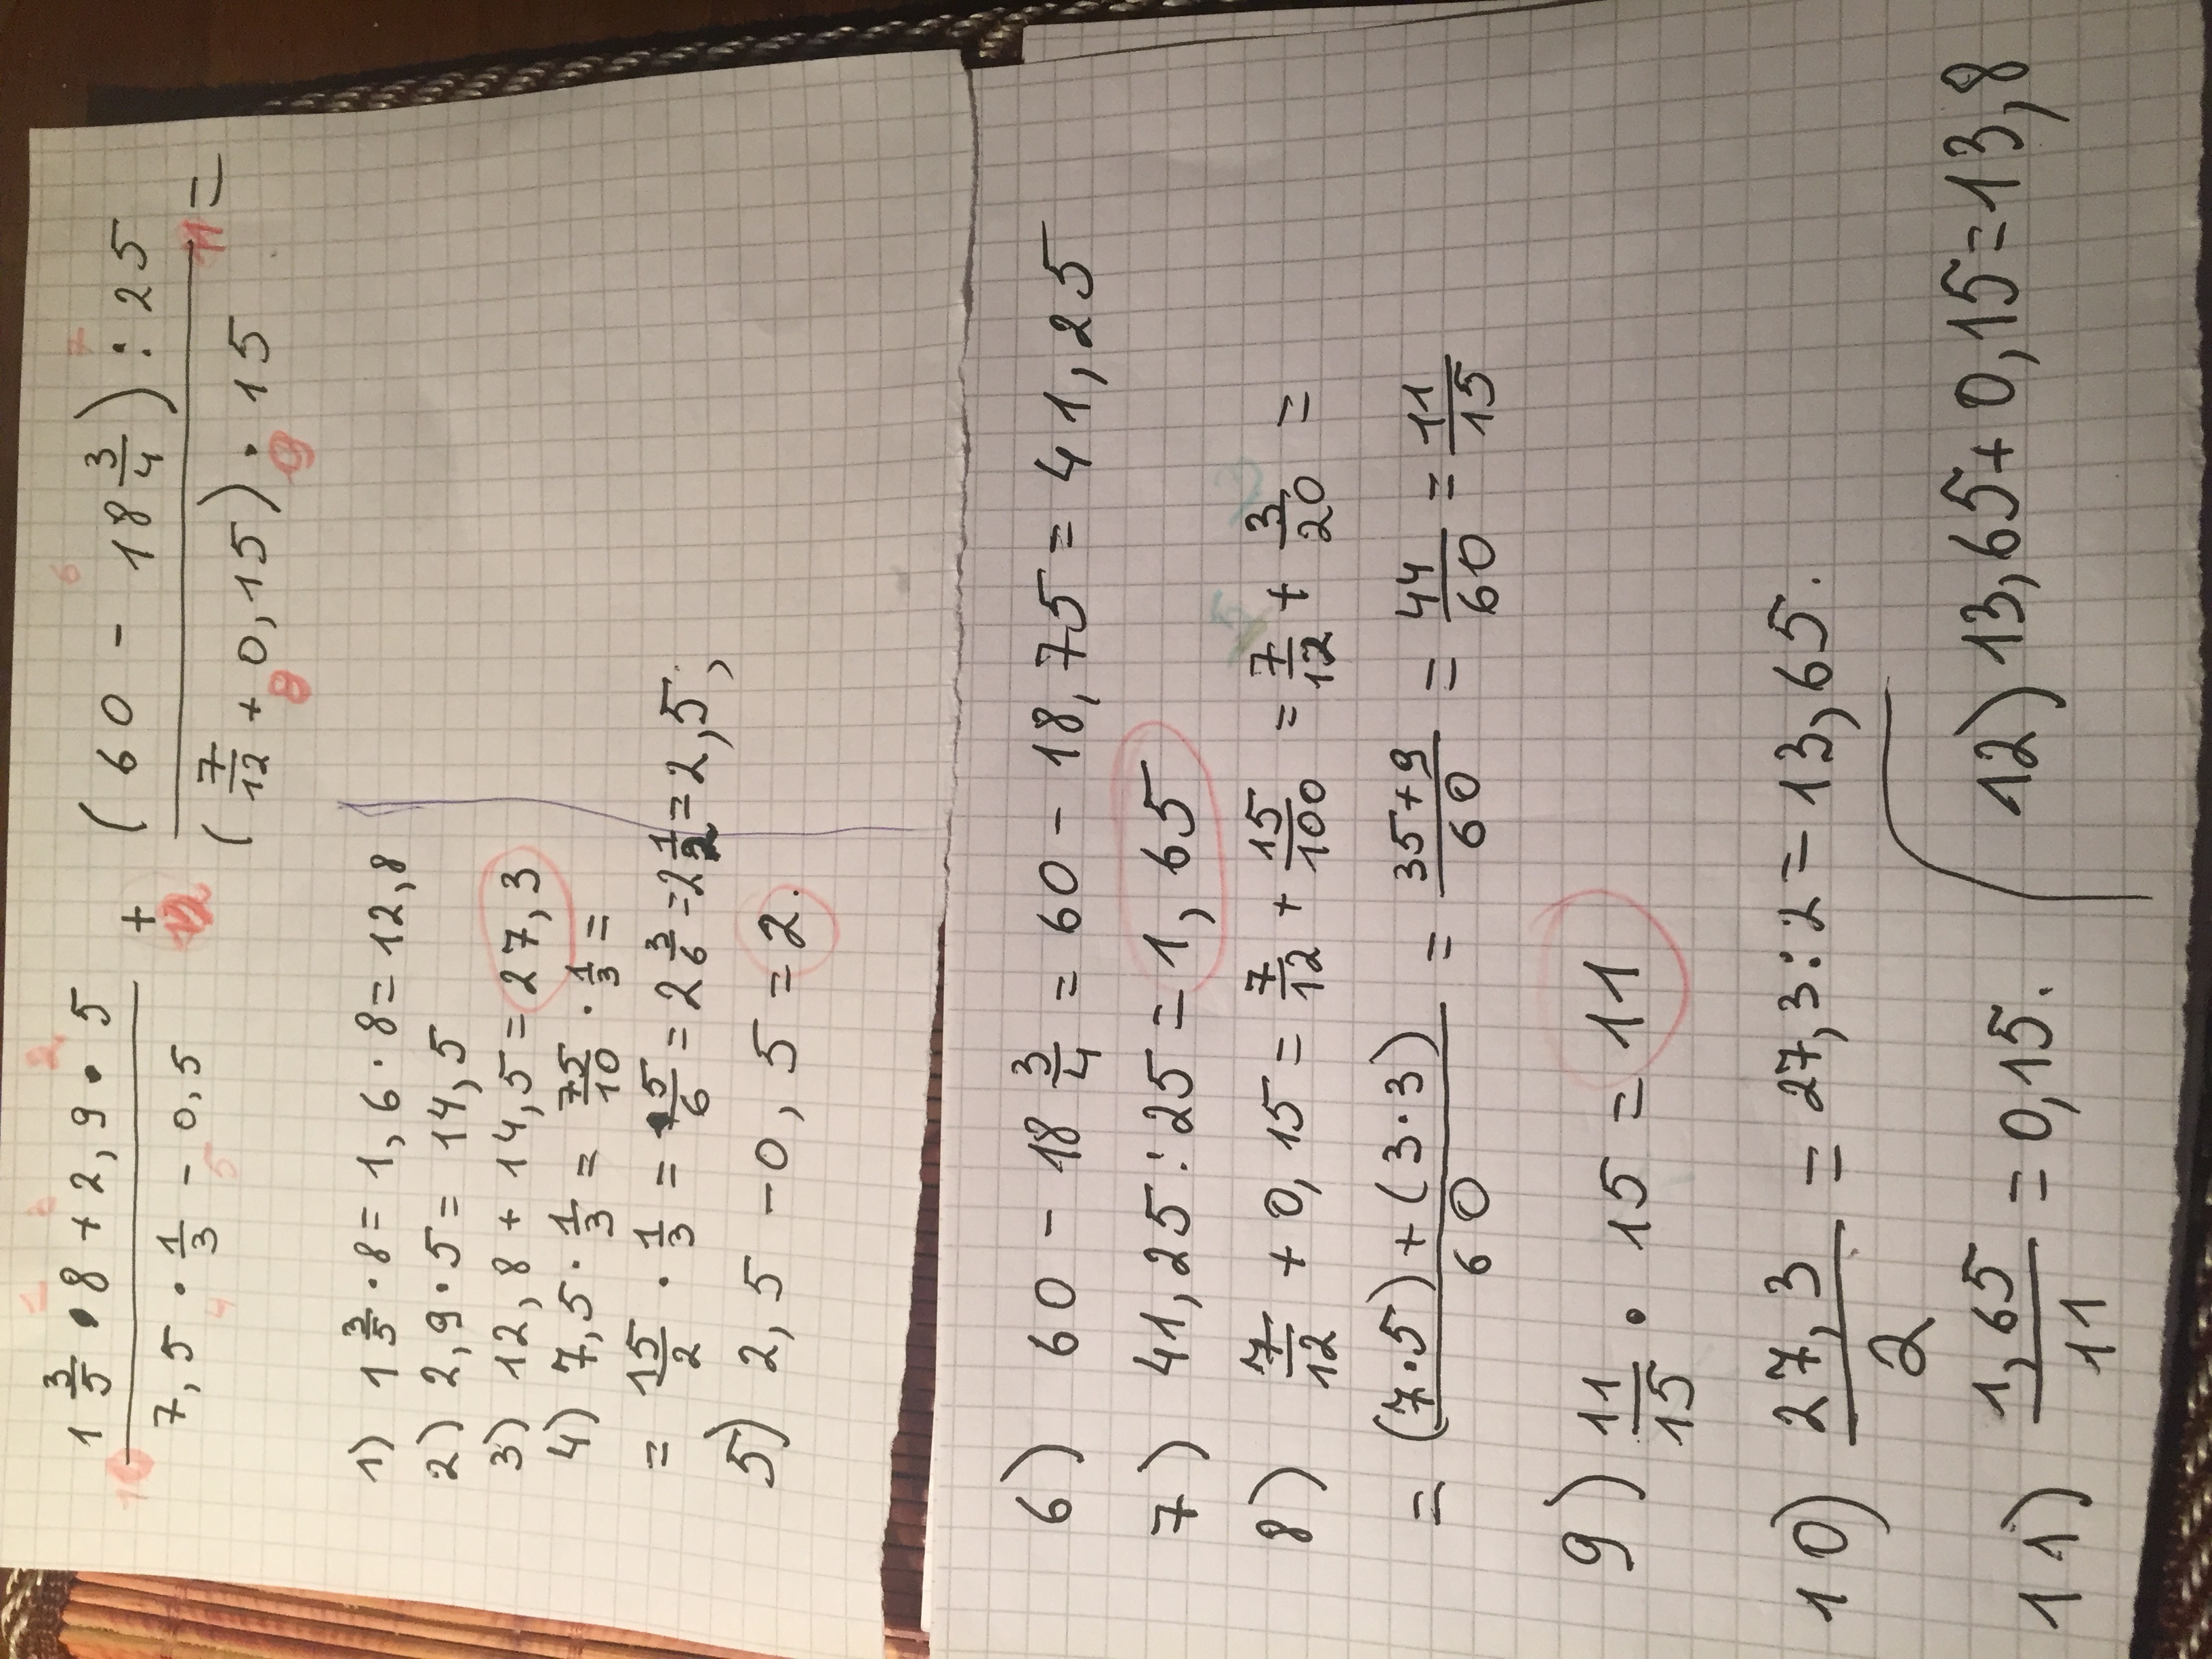 1 3/5 · 8 + 2,9 · 5 / 7,5 · 1/3 - 0,5 + (60 - 18 3/4) : 25 / (7/12 + 0,15) · 15 =
1) 1 3/5 · 8 = 1,6 · 8 = 12,8
2) 2,9 · 5 = 14,5
3) 12,8 + 14,5 = 27,3
4) 7,5 · 1/3 = 75/10 · 1/3 =
= 15/2 · 1/3 = 15/6 = 2 3/6 = 2 1/2 = 2,5,
5) 2,5 - 0,5 = 2.
6) 60 - 18 3/4 = 60 - 18,75 = 41,25
7) 41,25 : 25 = 1,65
8) 7/12 + 0,15 = 7/12 + 15/100 = 7/12 + 3/20 =
= (7·5) + (3·3) / 60 = 35+9 / 60 = 44/60 = 11/15
9) 11/15 · 15 = 11
10) 27,3 / 2 = 27,3 : 2 = 13,65.
11) 1,65 / 11 = 0,15.
12) 13,65 + 0,15 = 13,8